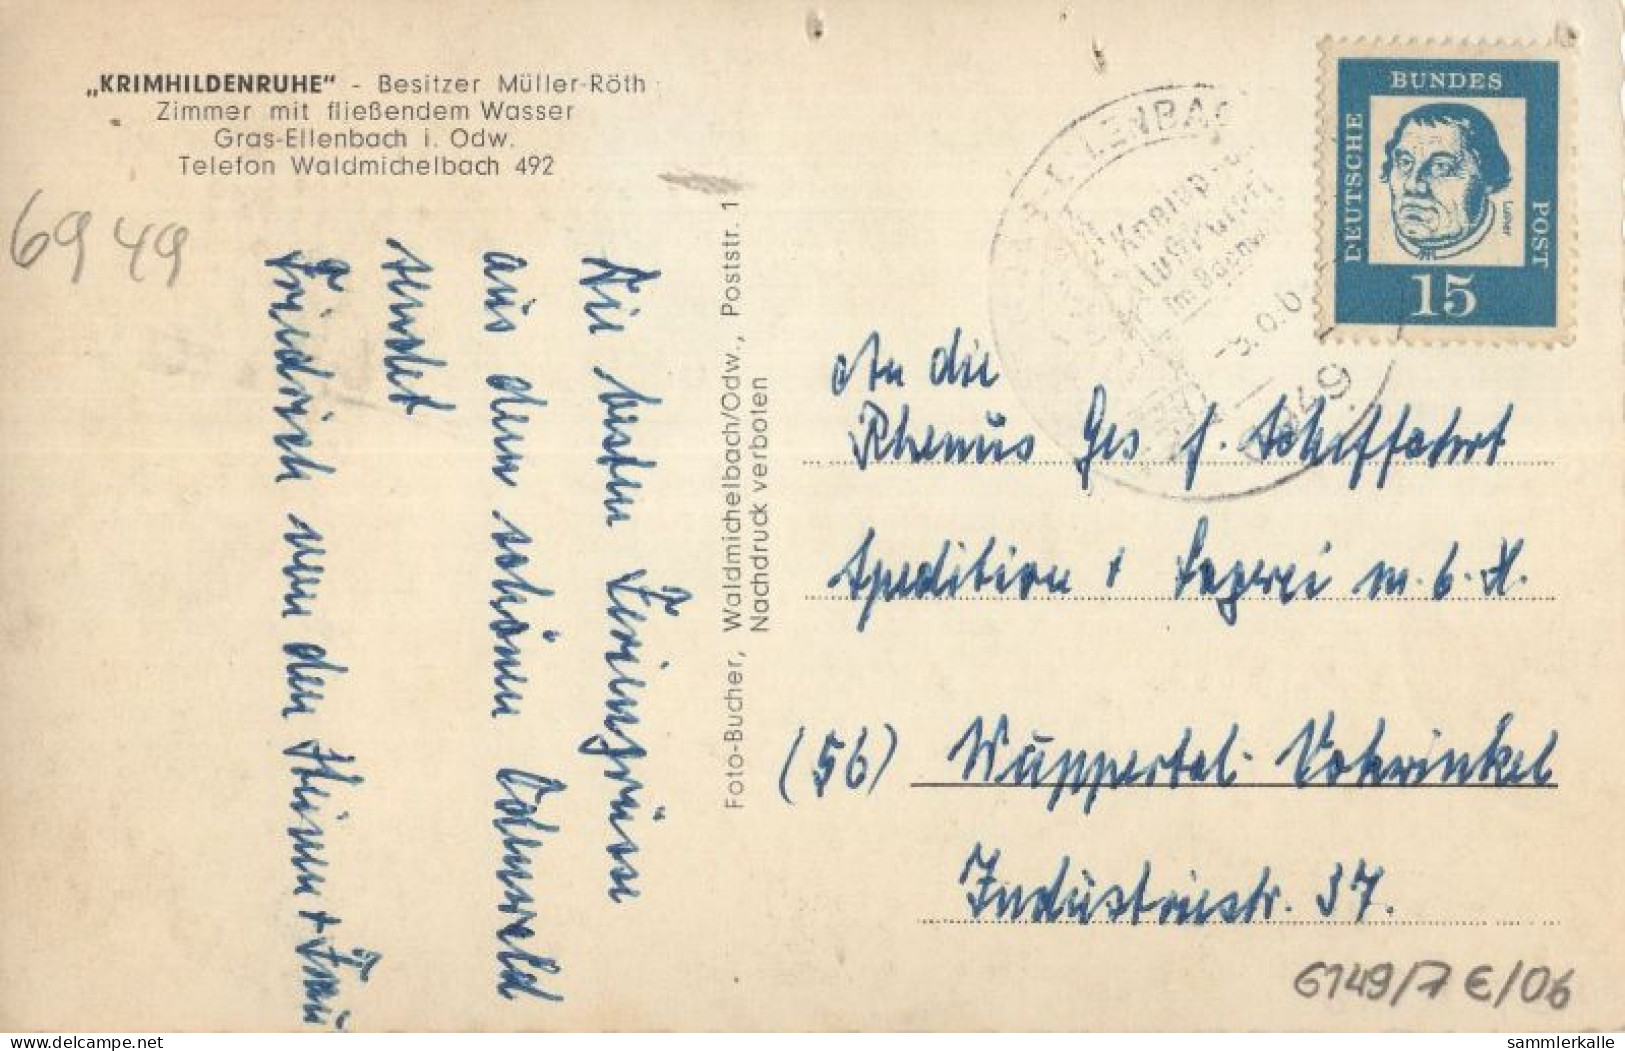 „KRIMHILDENRUHE" - Besitzer Müller-Röth
Zimmer mit fließendem Wasser
Gras-Ellenbach i. Odw.
Telefon Waldmichelbach 492
6949
Die besten Feriengrüsse
aus dem schönen Odenwald
sendet
Friedrich von den Steinen + Frau
Foto-Bucher, Waldmichelbach/Odw., Poststr. 1
Nachdruck verboten
LLENBAC
Kneipp
Luftkurort
im
6949
DEUTSCHE
BUNDES
POST
Luther
15
An die
Rhenus Ges f. Schiffahrt
Spedition + Lagerei m.b.H.
(56) Wuppertal-Vohwinkel
Industriestr. 37.
6149/7 €/06
www.delcampe.net
sammlerkalle